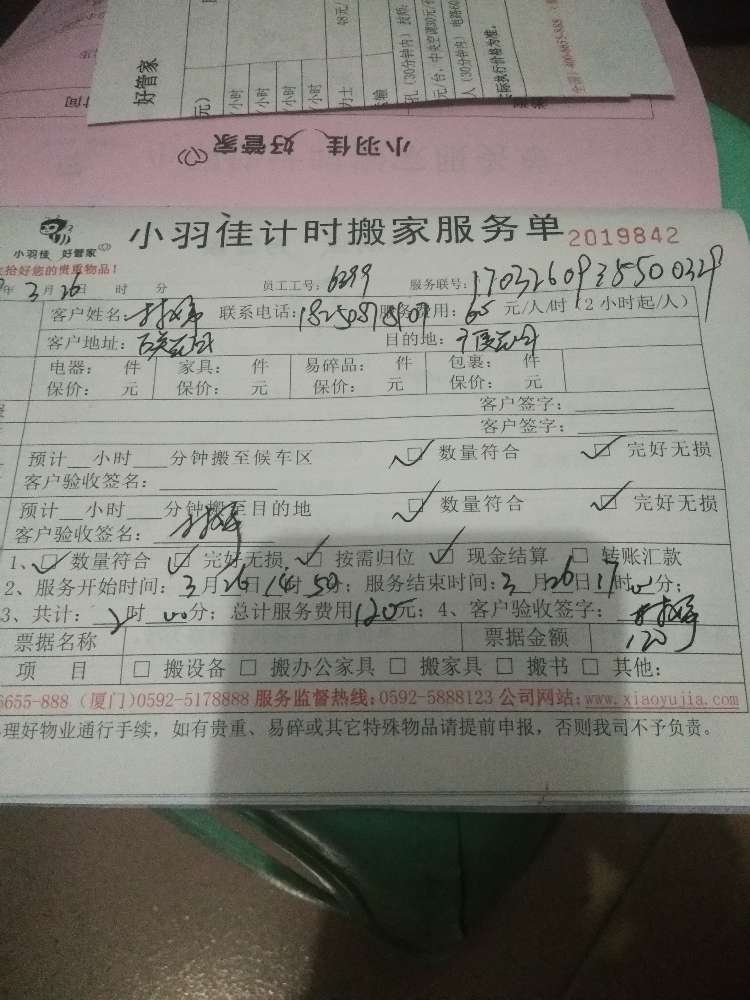 好管家
元）
小时
小时
小时
小时
力士
48元/
孔（30分钟内）
元/台，中央空调30元/
人（30分钟内）
实际执行价格为准。
小羽佳 好管家
小羽佳 好管家
小羽佳计时搬家服务单 2019842
好您的贵重物品！
年 3月26日 时 分 员工工号：6399 服务联号：
客户姓名： 联系电话： 服务费用：65 元/人/时（2小时起/人）
客户地址： 目的地：
电器： 件 家具： 件 易碎品： 件 包裹： 件
保价： 元 保价： 元 保价： 元 保价： 元
客户签字：
客户签字：
预计 小时 分钟搬至候车区 ☑ 数量符合 ☑ 完好无损
客户验收签名：
预计 小时 分钟搬至目的地 ☑ 数量符合 ☑ 完好无损
客户验收签名：
1、☑ 数量符合 ☑ 完好无损 ☑ 按需归位 ☑ 现金结算 □ 转账汇款
2、服务开始时间：3月26日14时50分；服务结束时间：3月26日17时00分；
3、共计：2时00分；总计服务费用120元；4、客户验收签字：
票据名称 票据金额 120
项 目 □ 搬设备 □ 搬办公家具 □ 搬家具 □ 搬书 □ 其他：
6655-888（厦门）0592-5178888 服务监督热线：0592-5888123 公司网站：www.xiaoyujia.com
理好物业通行手续，如有贵重、易碎或其它特殊物品请提前申报，否则我司不予负责。